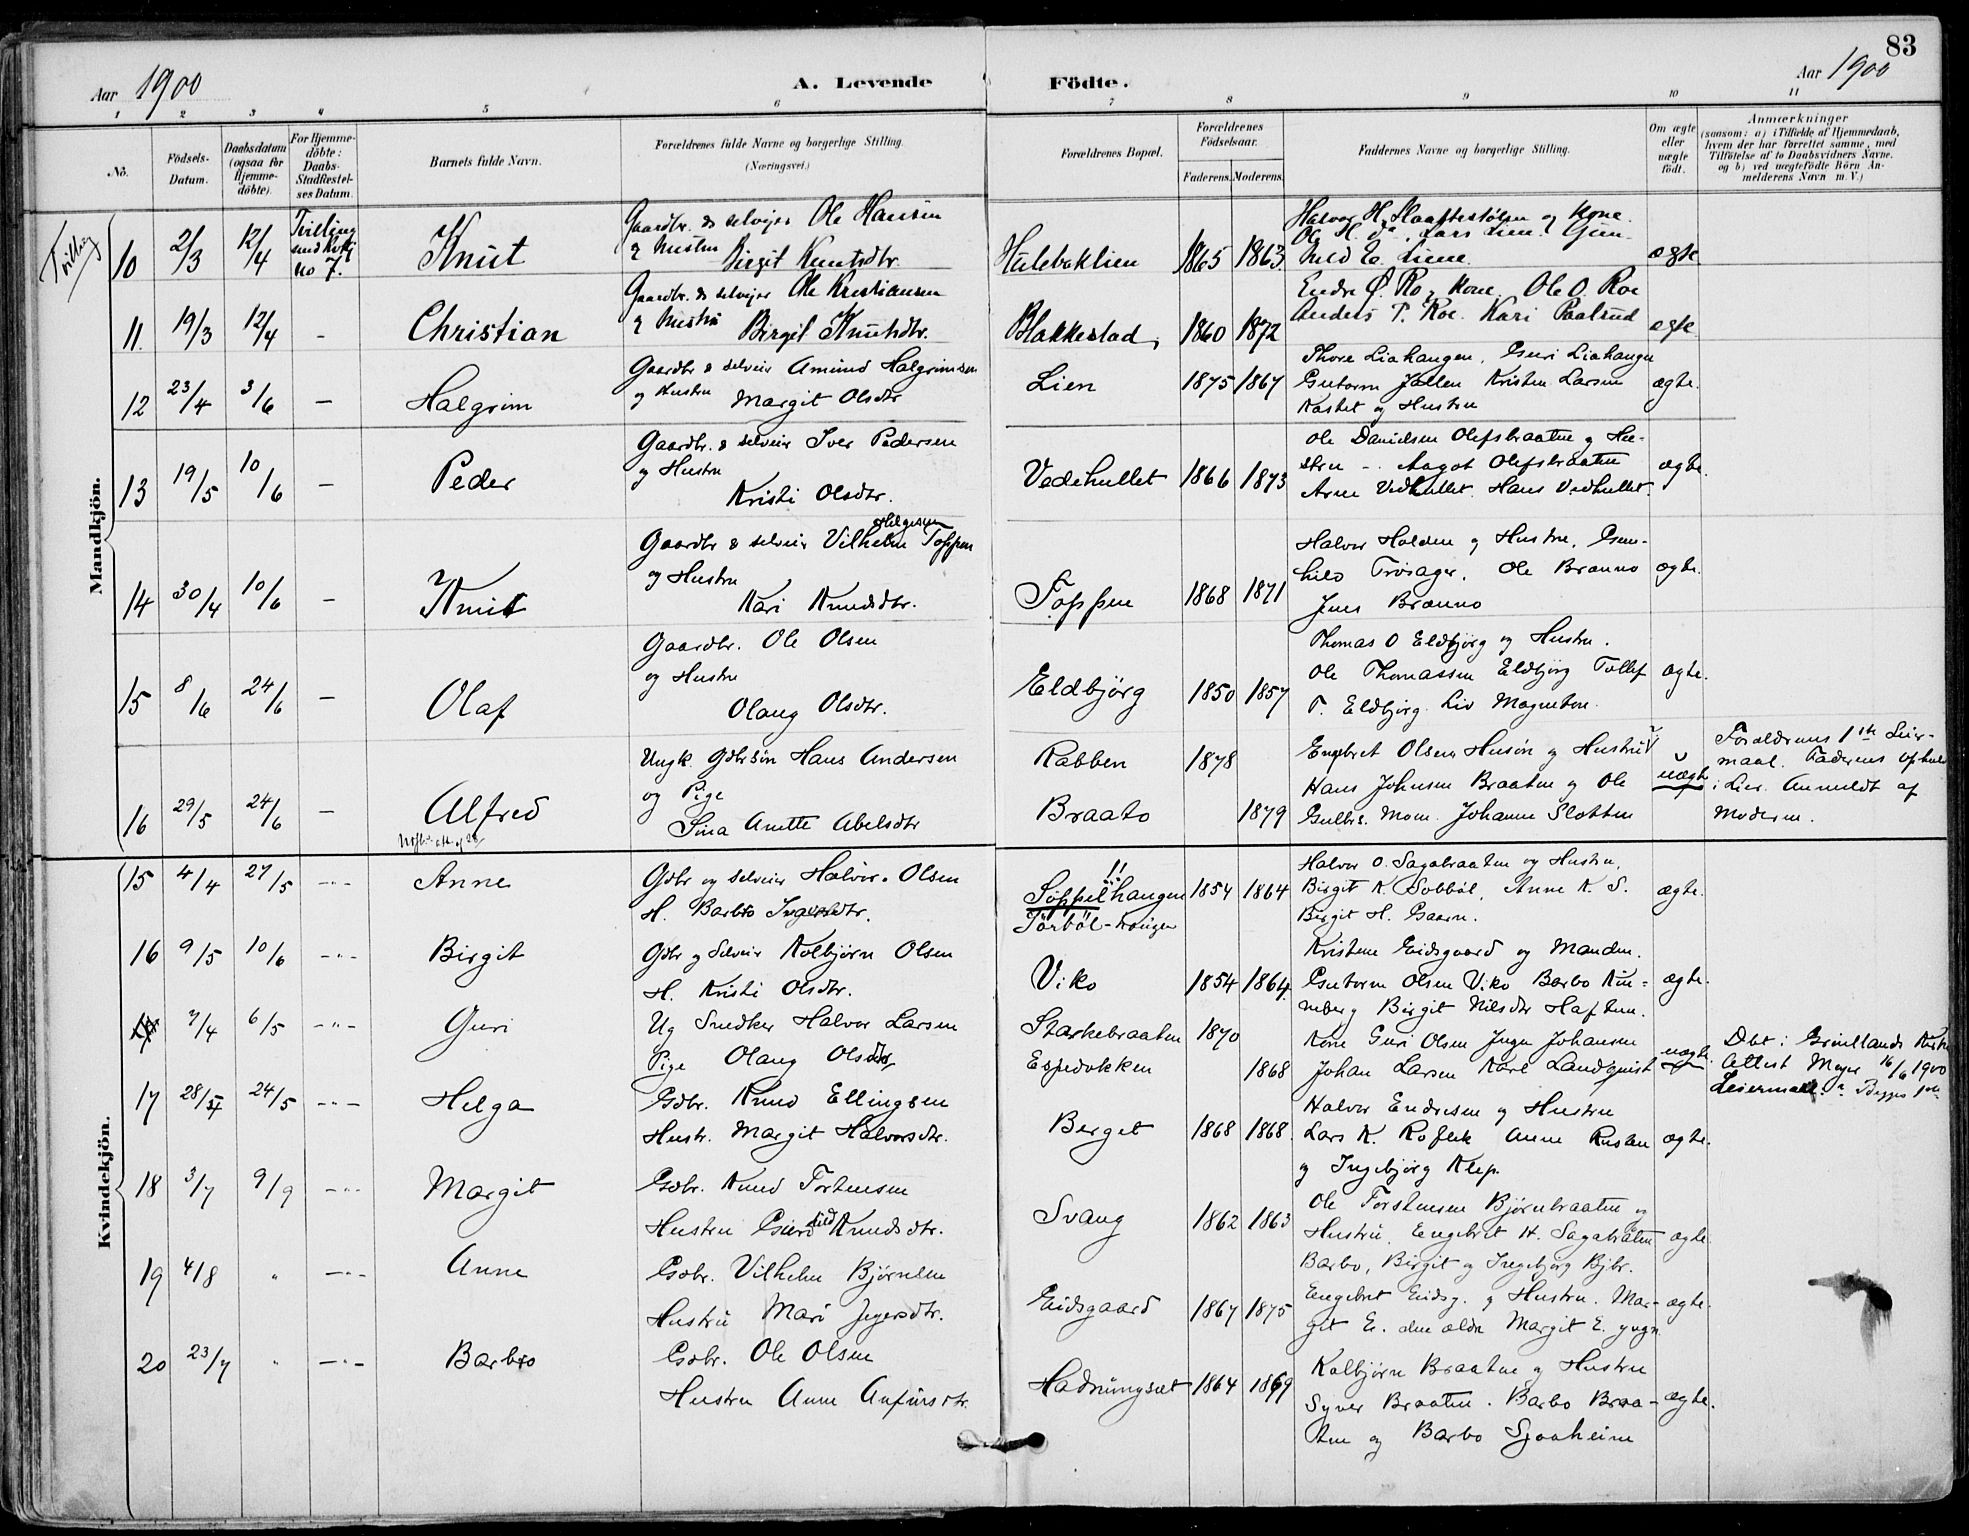 83
Aar 1900
A. Levende
Födte.
Aar 1900
1 2 3 4 5 6 7 8 9 10 11
No.
Födsels-Datum.
Daabsdatum (ogsaa for Hjemmedöbte).
For Hjemmedöbte: Daabs-Stadfæstelses Datum.
Barnets fulde Navn.
Forældrenes fulde Navne og borgerlige Stilling.
(Næringsvei.)
Forældrenes Bopæl.
Forældrenes Födselsaar.
Faderens. Moderens.
Faddernes Navne og borgerlige Stilling.
Om ægte eller uægte födt.
Anmærkninger
(saasom: a) i Tilfælde af Hjemmedaab, hvem der har forrettet samme, med Tilföielse af to Daabsvidners Navne, og b) ved uægtefödte Börn Anmelderens Navn m. V.)
Mandkjön.
Tvilling
10 2/3 12/4 Tvilling
no 7.
Knut
Gaardbr. & selvejer Ole Hansen
og Hustru Birgit Knutsdtr.
Hulebaklien 1865 1863
Halvor H. og Kone.
Ole H. do. Lars Lien.
ægte
11. 19/3 12/4 - Christian
Gaardbr. & selvejer Ole Kristiansen
og Hustru Birgit Knutsdtr.
Blakkestad, 1860 1872
Endre Ø. Ro, Kone. Ole O. Roe
Anders T. Roe. Kari Paalsrud
ægte
12 23/4 3/6 — Halgrim
Gaardbr & selveier Amund Halgrimsen
og Hustru Margit Olsdtr
Lien 1875 1867
Thore Liahaugen, Guri Liahaugen
Guttorm Jallen Kristen Larsen
og Hustru
ægte.
13 19/5 10/6 — Peder
Gaardbr. & selveier Iver Pedersen
og Hustru
Kristi Olsdtr.
Vedehullet 1866 1873
Ole Danielsen Olefsbraaten og Hu-
stru - Aagot Olefsbraaten
Arne Vedhullet. Hans Vedhullet.
ægte.
14 30/4 10/6 — Knut
Gaardbr & selveier Vilhelm Helgesen Toppen
og Hustru
Kari Knudsdtr.
Toppen 1868 1871
Halvor Holden og Hustru, Gun-
hild Trosager. Ole Brænno
Jens Brænno
ægte.
15 8/6 24/6 — Olaf
Gaardbr. Ole Olsen
og Hustru
Olaug Olsdtr.
Eldbjörg 1850 1857
Thomas O Eldbjörg og Hustru.
Ole Thomassen Eldbjörg Tollef
T. Eldbjörg. Liv
ægte.
16 29/5 24/6 — Alfred
Ungk. Gdbrsön Hans Andersen
og Pige
Sina Anette Abelsdtr
Rabben 1878
Braato 1879
Engebret Olsen Husön og Hustru
Hans Johnsen Braaten og Ole
Gulbr. Moen. Johanne Slotten
uægte
Forældrenes 1ste Leier-
maal. Faderens Ophold
i Lier. Anmeldt af
Moderen.
Kvindekjön.
15 4/4 27/5 -"- Anne
Gdbr og selveier Halvor Olsen
H. Barbro
Söppelhaugen 1854 1864
Törböl-haugen
Halvor O. Sagabraaten og Hustru,
Birgit K. Sobböl, Anne K. S.
Birgit H. Gaarn.
ægte.
16 9/5 10/6 -"- Birgit
Gdbr og Selveier Kolbjörn Olsen
H. Kristi Olsdtr.
Viko 1854 1864
Kristine Eidsgaard og Manden.
Guttorm Olsen Viko Barbo
Birgit Nilsdtr Haftun.
ægte.
7/4 6/5 -"- Guri
Ug Snedker Halvor Larsen
Pige Olaug Olsdtr
Starkebraaten 1870
Espedokken 1868
Kone Guri Olsen Inga Johansen
Johan Larsen Karl Landquist
uægte.
Dbt i Grönlands Kirke
Attest Meyer 16/6 1900
Leiermaal: Begges 1ste
17 28/4 24/5 -"- Helga
Gdbr. Knud Ellingsen
Hustr. Margit Halvorsdtr.
Berget 1868 1868.
Halvor Endresen og Hustru
Lars K. Anne Rusten
og Ingebjörg Klep.
ægte.
18 3/7 9/9 -"- Margit
Gdbr. Knud Torstensen
Hustru Guri Knudsdtr.
Svang 1862 1863
Ole Torstensen Björnbraaten og
Hustru, Engebret H. Sagabråten
Barbo, Birgit og Ingebjörg Bjbr.
ægte.
19 4/8 " -"- Anne
Gdbr. Vilhelm Björnsen
Hustru Mari
Eidsgaard 1867 1875
Engebret Eidsg. og Hustru. Mar-
git E. den ældre Margit E. yngr.
ægte.
20 23/7 " -"- Barbro
Gdbr. Ole Olsen
Hustru Anne Anfinsdtr.
Hadnungsæt 1864 1869
Kolbjörn Braaten og Hustru
Syver Braaten. Barbo Braa-
ten og Barbo Sjaaheim
ægte.